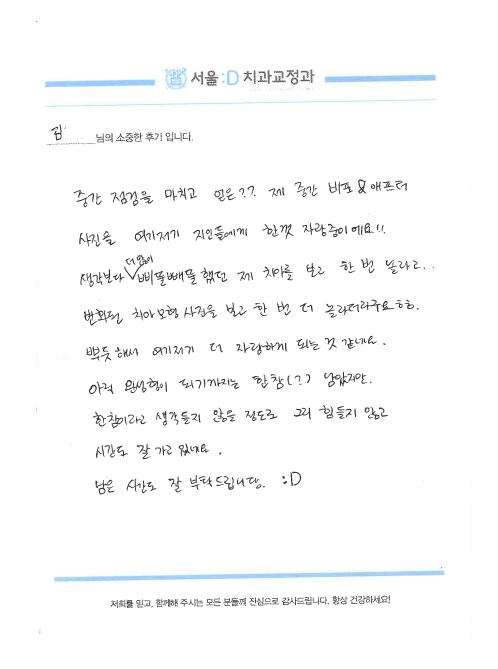 서울:D 치과교정과
김 님의 소중한 후기 입니다.
중간 점검을 마치고 얻은?? 제 중간 비포&애프터
사진을 여기저기 지인들에게 한껏 자랑중이에요!!
더욱이
생각보다 삐뚤빼뚤했던 제 치아를 보고 한 번 놀라고..
변화된 치아모형 사진을 보고 한 번 더 놀라더라구요ㅎㅎ.
뿌듯해서 여기저기 더 자랑하게 되는 것 같네요.
아직 완성형이 되기까지는 한참(?) 남았지만.
한참이라고 생각들지 않을 정도로 그리 힘들지 않고
시간도 잘 가고 있네요.
남은 시간도 잘 부탁드립니당. :D
저희를 믿고, 함께해 주시는 모든 분들께 진심으로 감사드립니다. 항상 건강하세요!